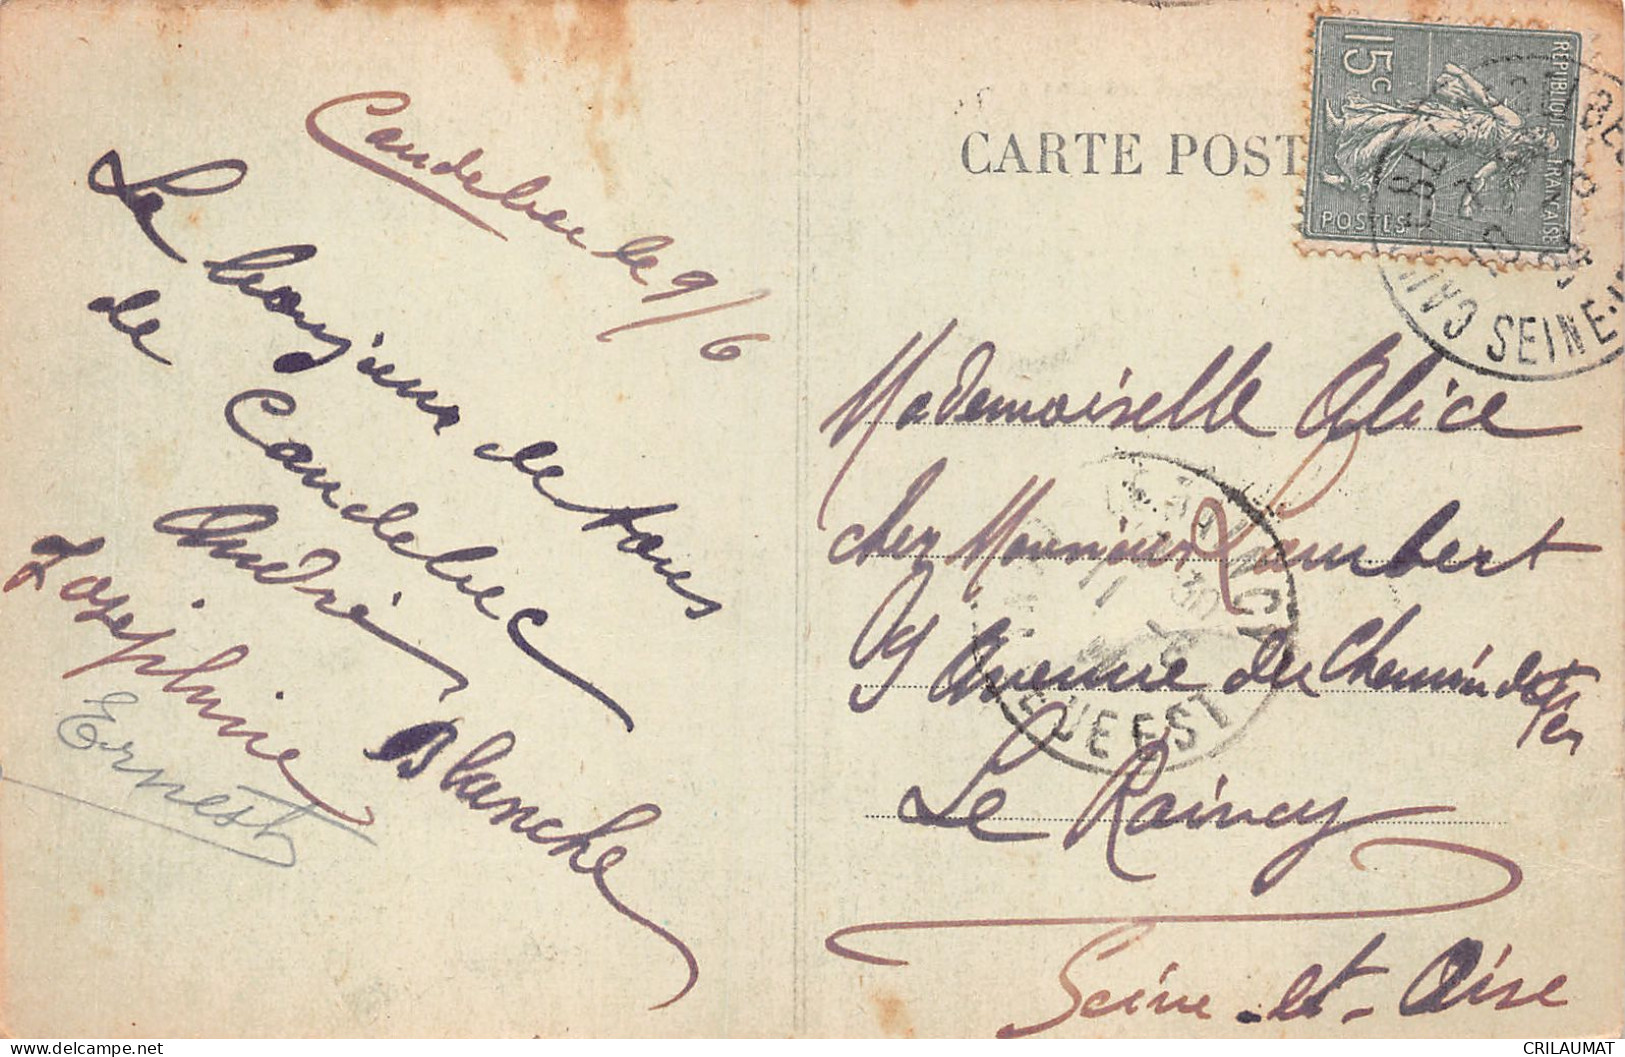 Caudebec le 9/6
Le bonjour de tous
de Caudebec
André
Josephine
Blanche
Ernest
CARTE POST
15c
REPUBLIQUE FRANÇAISE
POSTES
SEINE-
Mademoiselle Alice
chez Monsieur Lambert
9 Avenue du Chemin de Fer
Le Raincy
Seine-et-Oise
CRILAUMAT